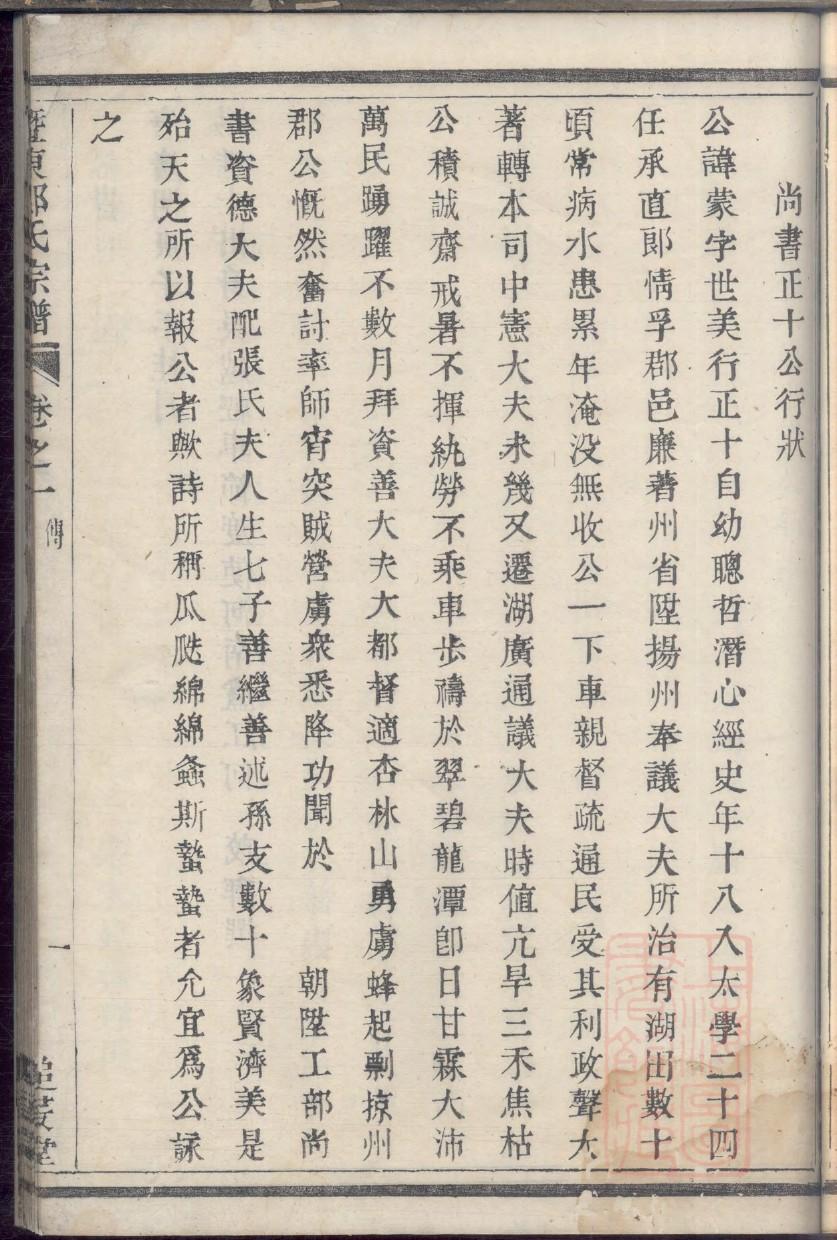 尚書正十公行狀
公諱蒙字世美行正十自幼聰哲潛心經史年十八入太學二十四
任承直郎情孚郡邑廉著州省陞揚州奉議大夫所治有湖田數十
頃常病水患累年淹没無收公一下車親督疏通民受其利政聲大
著轉本司中憲大夫未幾又遷湖廣通議大夫時值亢旱三禾焦枯
公積誠齋戒暑不揮紈勞不乘車步禱於翠碧龍潭卽日甘霖大沛
萬民踴躍不數月拜資善大夫大都督適杏林山勇虜蜂起剽掠州
郡公慨然奮討率師宵突賊營虜衆悉降功聞於　朝陞工部尚
書資德大夫配張氏夫人生七子善繼善述孫支數十象賢濟美是
殆天之所以報公者歟詩所稱瓜瓞綿綿螽斯蟄蟄者允宜爲公詠
之
氏宗譜 卷之一 傳 一